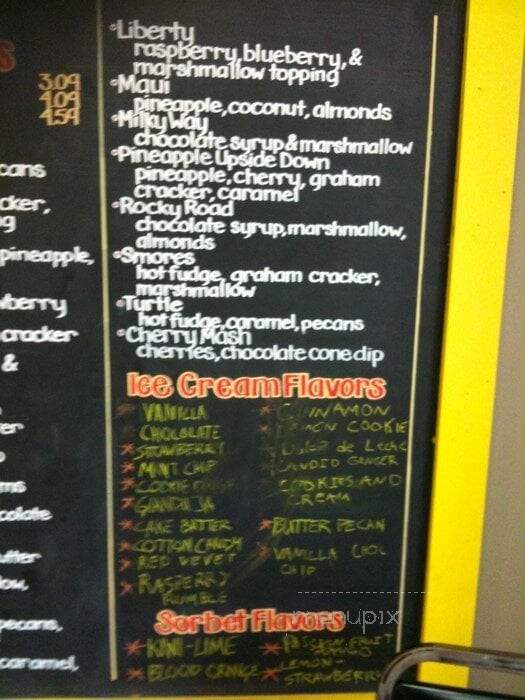 s
3.09
4.09
4.59
cans
cker,
pineapple,
wberry
cracker
&
er
ms
colate
utter
low,
pecans,
caramel,
•Liberty
raspberry, blueberry, &
marshmallow topping
•Maui
pineapple, coconut, almonds
•Milky Way
chocolate syrup & marshmallow
•Pineapple Upside Down
pineapple, cherry, graham
cracker, caramel
•Rocky Road
chocolate syrup, marshmallow,
almonds
•Smores
hot fudge, graham cracker,
marshmallow
•Turtle
hot fudge, caramel, pecans
•Cherry Mash
cherries, chocolate cone dip
Ice Cream Flavors
VANILLA
CHOCOLATE
STRAWBERRY
MINT CHIP
COOKIE
GIANDUJA
CAKE BATTER
COTTON CANDY
RED VEVET
RASPBERRY
CRUMBLE
CINNAMON
LEMON COOKIE
Dulce de Leche
CANDIED GINGER
COOKIES AND
CREAM
BUTTER PECAN
VANILLA CHOC
CHIP
Sorbet Flavors
KIWI-LIME
BLOOD ORANGE
PASSIONFRUIT
LEMON-
STRAWBERRY
menupix